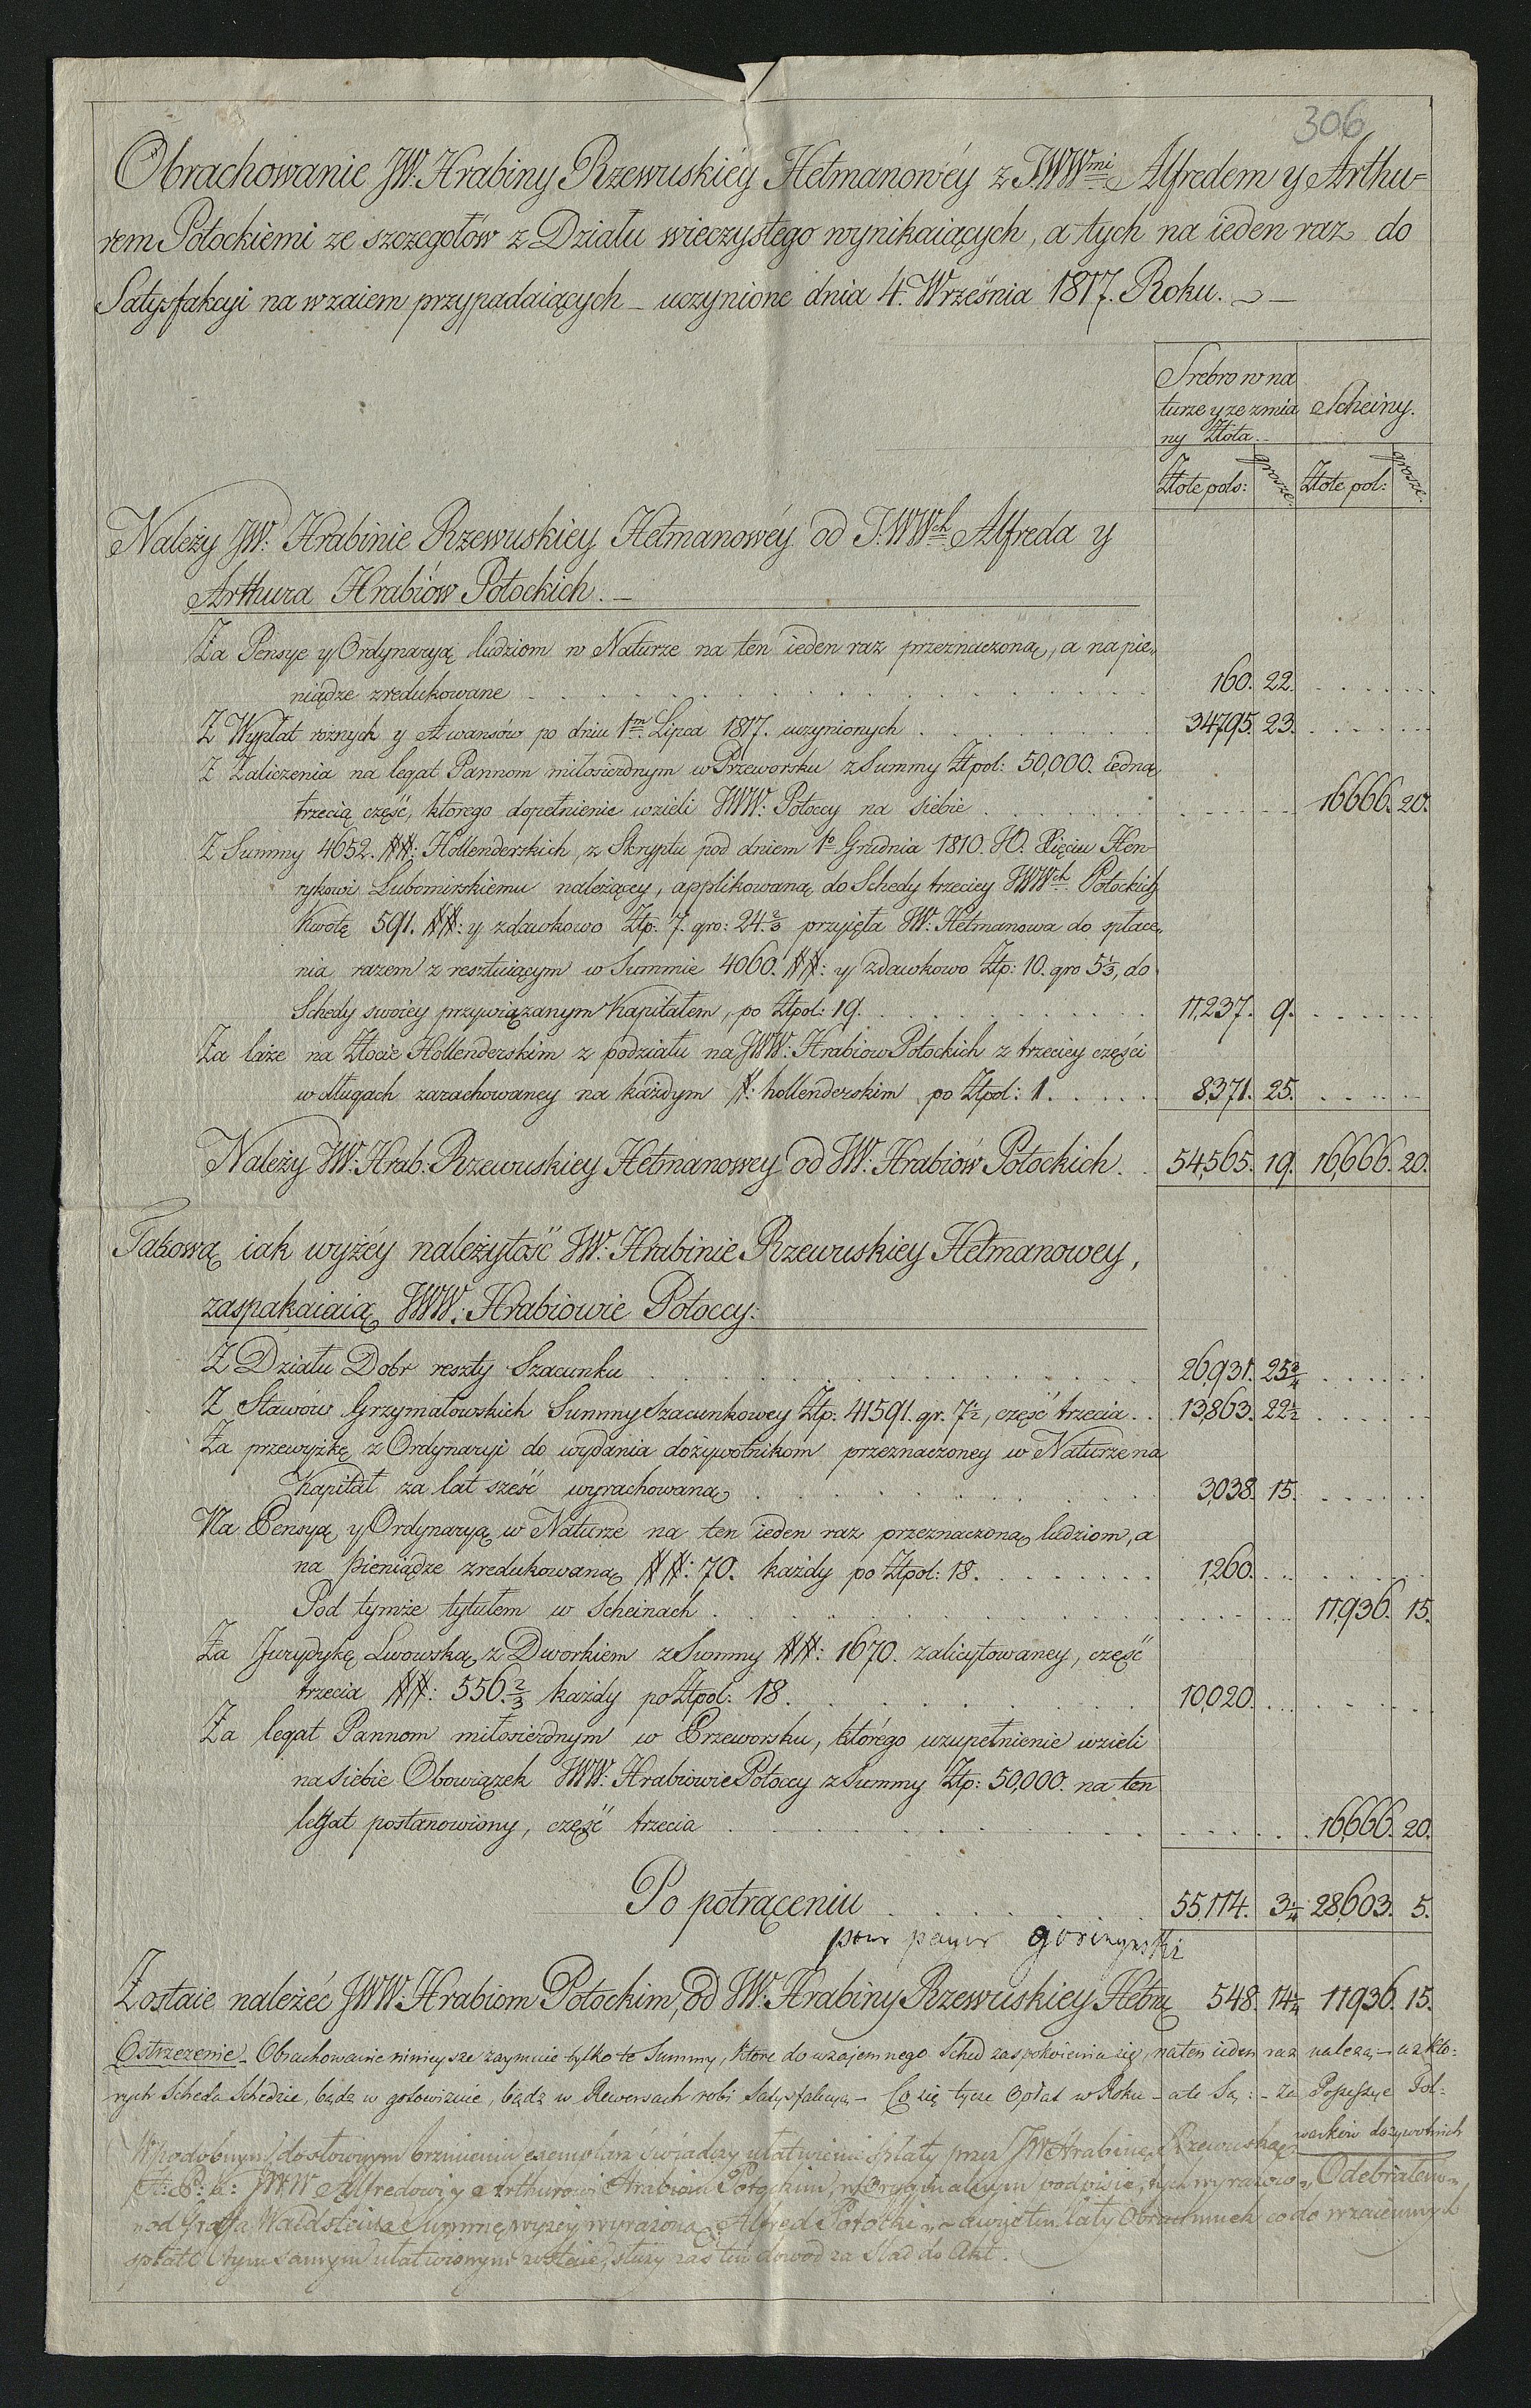 306
Obrachowanie JW. Hrabiny Rzewuskiéy Hetmanowéy z J.WW.mi Alfredem y Arthu=
rem Potockiemi ze szczegołów z Działu wieczystego wynikaiących, a tych na ieden raz do
Satysfakcyi nawzaiem przypadaiących – uczynione dnia 4. Września 1817. Roku.
Srebro w na
turze y ze zmia
ny Złota.
Scheiny.
Złote pols: grosze. Złote pol: grosze.
Należy JW. Hrabinie Rzewuskiey Hetmanowéy od J.WW.ch Alfreda y
Arthura Hrabiów Potockich. –
Za Pensye y Ordynaryą ludziom w Naturze na ten ieden raz przeznaczoną, a na pie„
niądze zredukowane 160. 22.
Z Wypłat rożnych y Awansów po dniu 1m. Lipca 1817. uczynionych 34795. 23.
Z Zaliczenia na legat Pannom miłosierdnym w Przeworsku z Summy Złpol: 50,000. iedną
trzecią część, ktorego dopełnienie wzieli JWW: Potoccy na siebie 16666. 20.
Z Summy 4652. ##: Hollenderskich, z Skryptu pod dniem 1o Grudnia 1810. JO. Xięciu Hen-
rykowi Lubomirskiemu należącey, applikowaną do Schedy trzeciey JWW.ch Potockich
Kwotę 591. ##: y zdawkowo Złp: 7. gro: 24 2/3 przyięła JW: Hetmanowa do spłace„
nia razem z resztuiącym w Summie 4060. ##: y zdawkowo Złp: 10. gro 5 1/3, do
Schedy swoiey przywiązanym Kapitałem, po Złpol: 19. 11,237. 9.
Za laże na Złocie Hollenderskim z podziału na JWW: Hrabiow Potockich z trzeciey części
w długach zarachowaney na każdym #: hollenderskim po Złpol: 1. 8,371. 25.
Należy JW: Hrab: Rzewuskiey Hetmanowey od JW: Hrabiów Potockich. 54,565. 19. 16,666. 20.
Takową iak wyżéy należytość JW: Hrabinie Rzewuskiey Hetmanowey,
zaspakaiaią JWW: Hrabiowie Potoccy:
Z Działu Dobr reszty Szacunku 26,931. 25 3/4
Z Stawów Grzymałowskich Summy Szacunkowey Złp: 41591. gr. 7 1/2, część trzecia 13,863. 22 1/2
Za przewyżkę z Ordynaryi do wydania dożywotnikom przeznaczoney w Naturze na
Kapitał za lat sześć wyrachowaną 3,038. 15.
Na Pensyą y Ordynaryą w Naturze na ten ieden raz przeznaczoną ludziom, a
na pieniądze zredukowaną ##: 70. każdy po Złpol: 18. 1,260.
Pod tymże tytułem w Scheinach 11,936. 15.
Za Jurydykę Lwowską z Dworkiem z Summy ##: 1670. zalicytowaney, część
trzecia ##: 556 2/3 każdy po Złpol: 18. 10,020.
Za legat Pannom miłosierdnym w Przeworsku, którego uzupełnienie wzieli
na siebie Obowiązek JWW: Hrabiowie Potoccy z Summy Złp: 50,000. na ten
legat postanowiony, część trzecia 16,666. 20.
Po potrąceniu 55,114. 3 1/4 28,603. 5.
pour payer
Zostaie należéć JWW: Hrabiom Potockim, od JW: Hrabiny Rzewuskiey Hetm 548. 14 1/2 11936. 15.
Ostrzeżenie – Obrachowanie ninieysze zaymuie tylko te Summy, ktore do wzajemnego Sched zaspokoienia się, na ten ieden raz należą – a z kto=
rych Scheda Schedzie, bądz w gotowiznie, bądz w Rewersach robi Satysfakcyą – Co się tycze Opłat w Roku – ale Są: – za Possessye Fol=
warków dożywotnich
W podobnym dosłownym brzmieniu exemplarz świadczy ułatwienie Spłaty przez JW Hrabinę Rzewuską
JWW Alfredowi y Arthurowi Hrabiom Potockim, w Oryginalnym podpisie, tych wyrazów „Odebrałem
„od Grafa Waldsteina Summę wyżey wyrażoną Alfred Potocki„ – a więc ten cały Obrachunek co do wzaiemnych
spłat tym samym ułatwionym zostaie, służy zaś ten dowód za Slad do Akt.